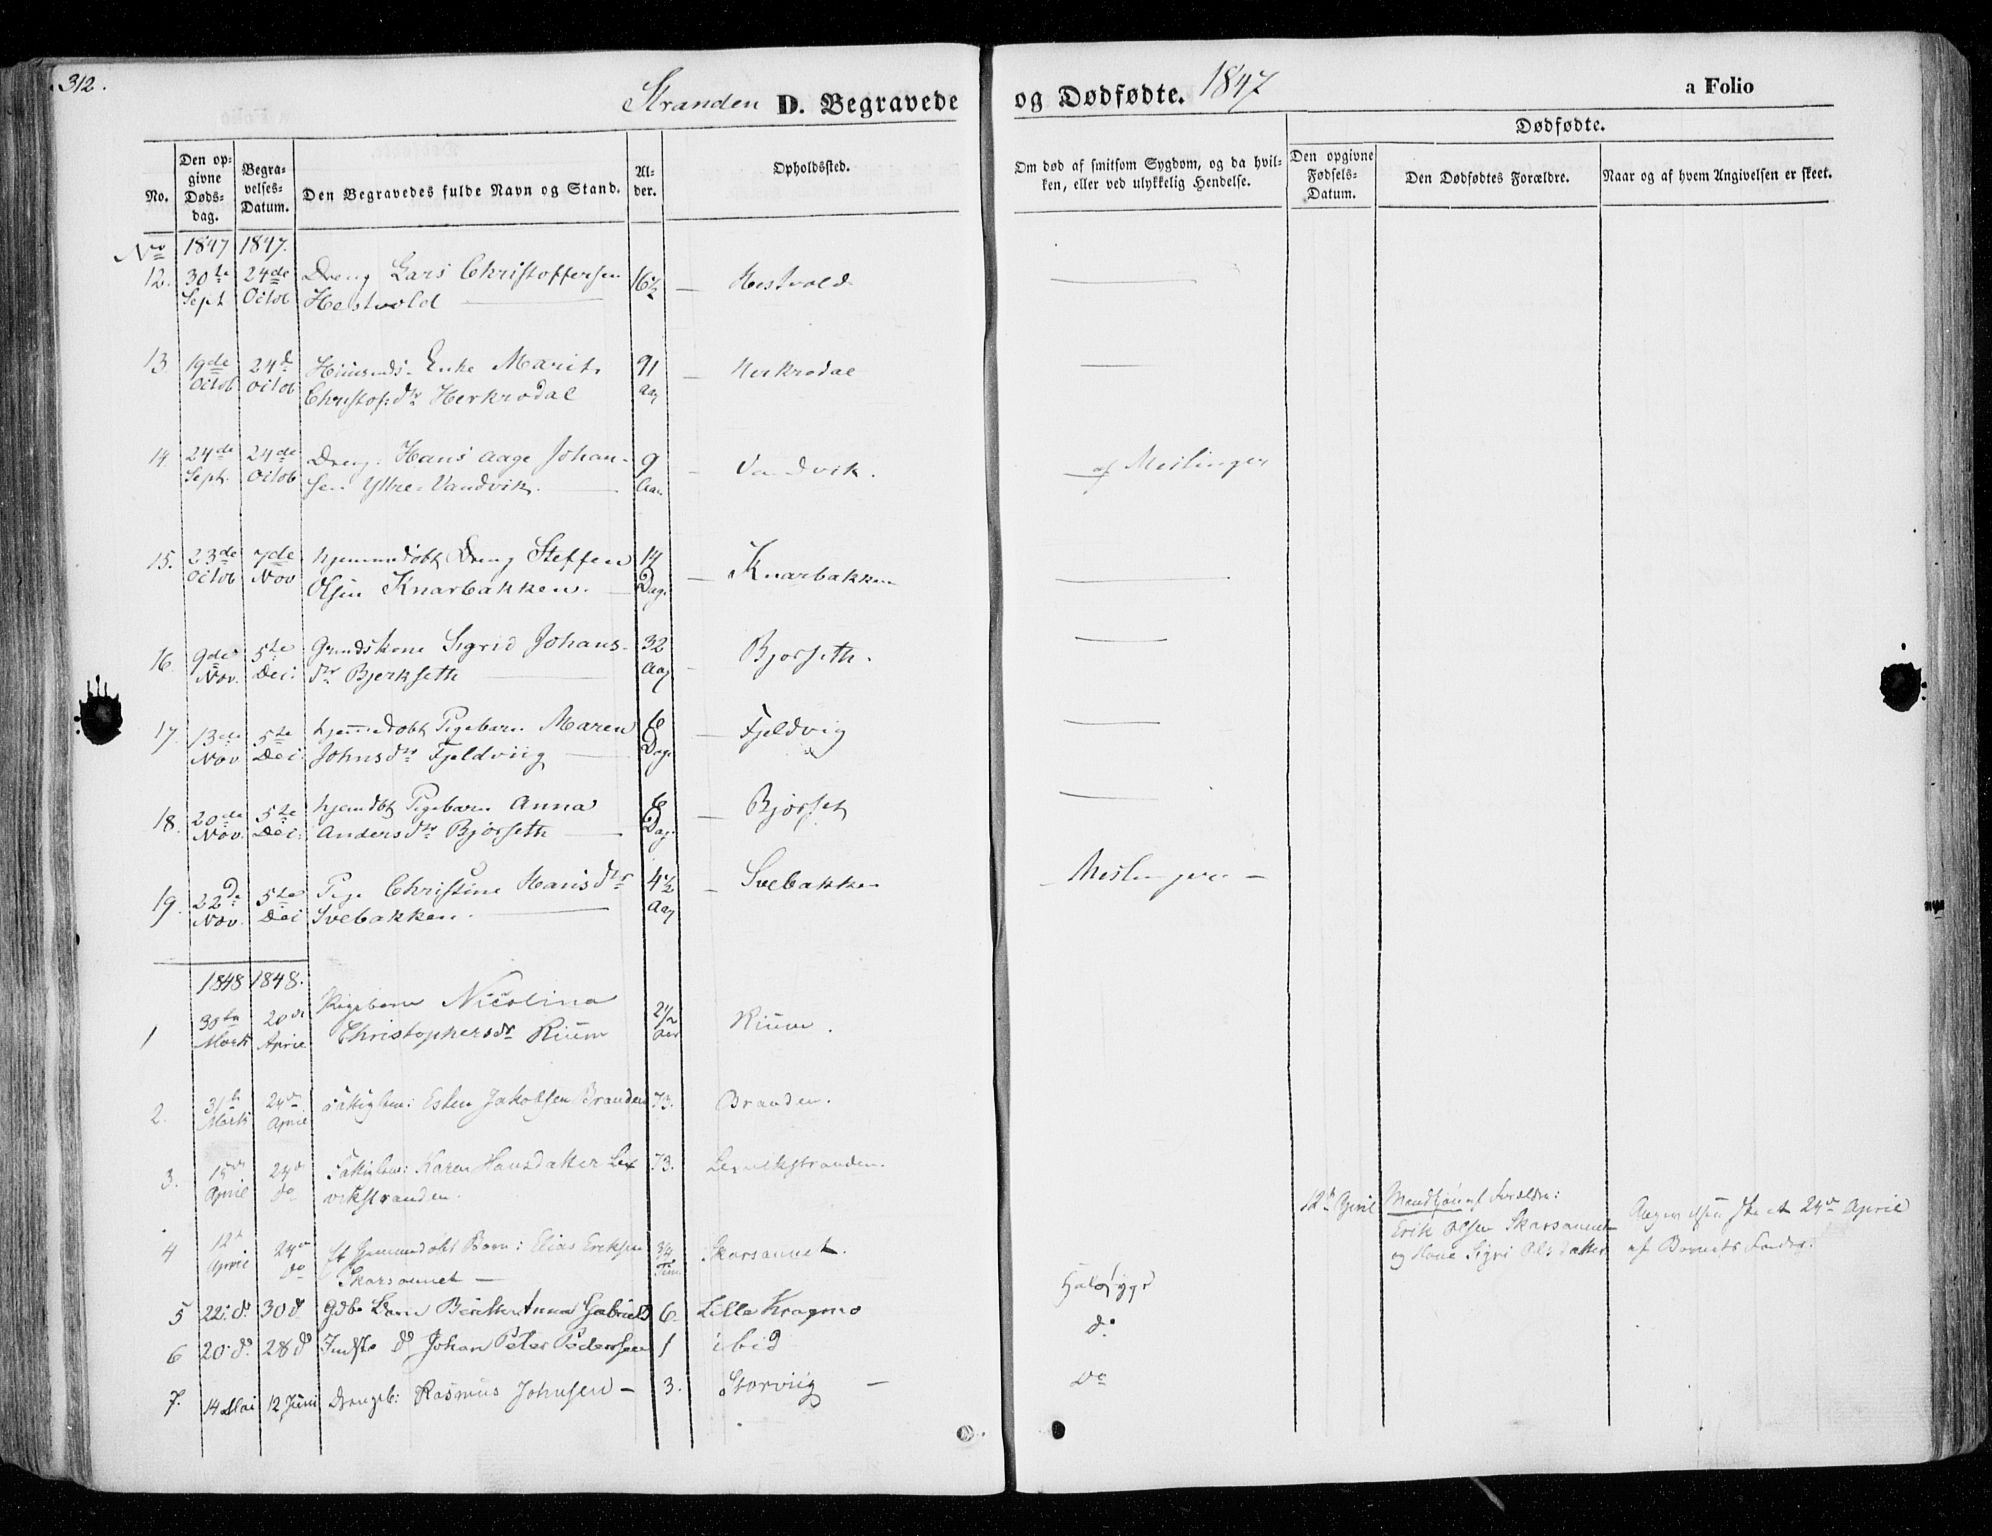 312.
Stranden D. Begravede og Dødfødte. 1847 a Folio
No.
Den opgivne Dødsdag.
Begravelses-Datum.
Den Begravedes fulde Navn og Stand.
Alder.
Opholdssted.
Om død af smitsom Sygdom, og da hvilken, eller ved ulykkelig Hendelse.
Dødfødte.
Den opgivne Fødsels-Datum.
Den Dødfødtes Forældre.
Naar og af hvem Angivelsen er skeet.
No 1847 1847.
12. 30te 24de Dreng Lars Christoffersen 16½ – Hestvold
Sept Octob Hestvold
13. 19de 24d Enke Marit 91 – Herkrodal
Octob Octob Christofsdr Herkrodal Aar
14 24de 24de Dreng Hans Aage Johan- 9 – Vandvik. af Meslinger
Sept. Octob sen Yttre Vandvik. Aar
15. 23de 7de hjemmedøbt Dreng Steffen 14 – Knarbakken
Octob Nov Olsen Knarbakken. Dage
16 9de 5te Sigrid Johans- 32 – Bjørseth.
Nov. Dec: dr Bjerkseth Aar
17. 13de 5te hjemmedøbt Pigebarn Maren 6 – Fjeldvig
Nov Dec Johnsdr Fjeldviig Dage
18. 20de 5te hjemdøbt Pigebarn Anna 6 – Bjørset
Nov. Dec: Andersdr Bjørseth Dage
19. 22de 5te Pige Christine Hansdtr 4½ – Svebakken – Meslingerne –
Nov. Dec Svebakken. Aar
1848 1848.
Pigebarn Nicolina 2½ Riium.
1 30te 20de Christophersdr Riium Aar
Marts April
2. 31te 24de Esten Jakobsen Branden 73. Branden.
Marts April
3. 15de 24de Karen Hansdatter Lex 73. Lexvikstranden.
April do vikstranden.
12te April Forældre:
4 12te 24de Barn: Elias Eriksen ¾ Skarsaunet.
April do Skarsaunet – Time
Erik Olsen Skarsaunet
og Kone Sigri Olsdatter
skeet 24de April
af Barnets Fader.
5 22. do 30 do Anna Gabriels 6. Lille Kragmo Halssyge
6 20 do. 28 do Indste do Johan Peter Pedersen 1 ibid do
7. 14 Mai 12 Juni Drengeb: Rasmus Johnsen – 3. Storviig – do